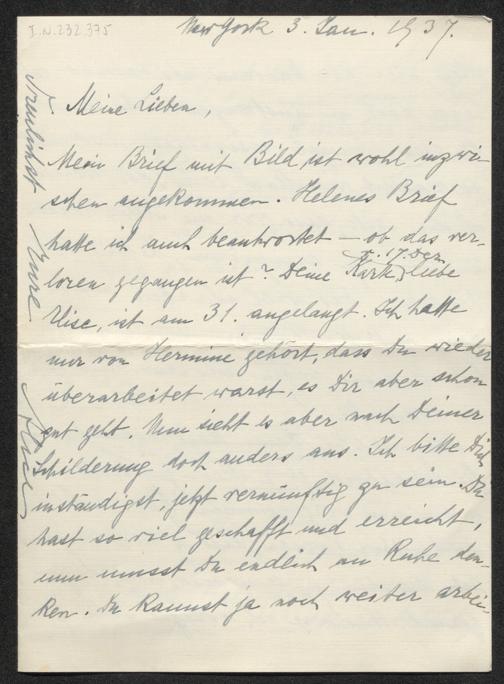 I.N. 232.375
New York 3. Jan. 1937.
Meine Lieben,
Mein Brief mit Bild ist wohl inzwi-
schen angekommen. Helenes Brief
hatte ich auch beantwortet – ob das ver-
loren gegangen ist? Deine Karte
v. 17. Dez.
liebe
Ilise, ist am 31. angelangt. Ich hatte
nur von Hermine gehört, dass Du wieder
überarbeitet warst, es Dir aber schon
gut geht. Nun sieht es aber nach Deiner
Schilderung doch anders aus. Ich bitte Dich
inständigst, jetzt vernünftig zu sein. Du
hast so viel geschafft und erreicht,
nun musst Du endlich an Ruhe den-
ken. Du kannst ja noch weiter arbei-
Treulichst
Eure